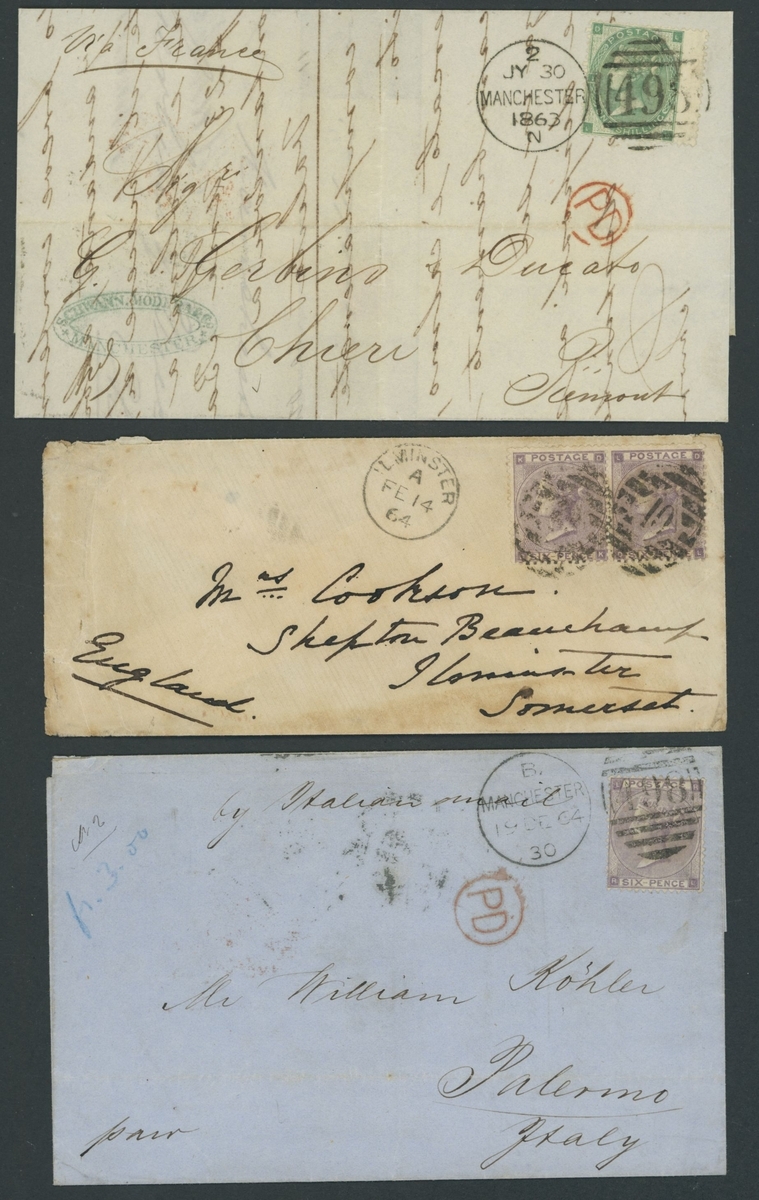 via France
2
JY 30
MANCHESTER
1863
N
POSTAGE
498
PD
Sigri
G. Herbino & Ducato
SCHWANN. MODERA & CO
MANCHESTER
Chieri
Piemont
ILMINSTER
A
FE 14
64
POSTAGE
SIX-PENCE
POSTAGE
Mrs Cookson.
Shepton Beauchamp
Ilminster
Somerset.
England.
by Italian mail
B.
MANCHESTER
19 DE 64
30
498
POSTAGE
SIX-PENCE
PD
Mr William Köhler
Palermo
Italy